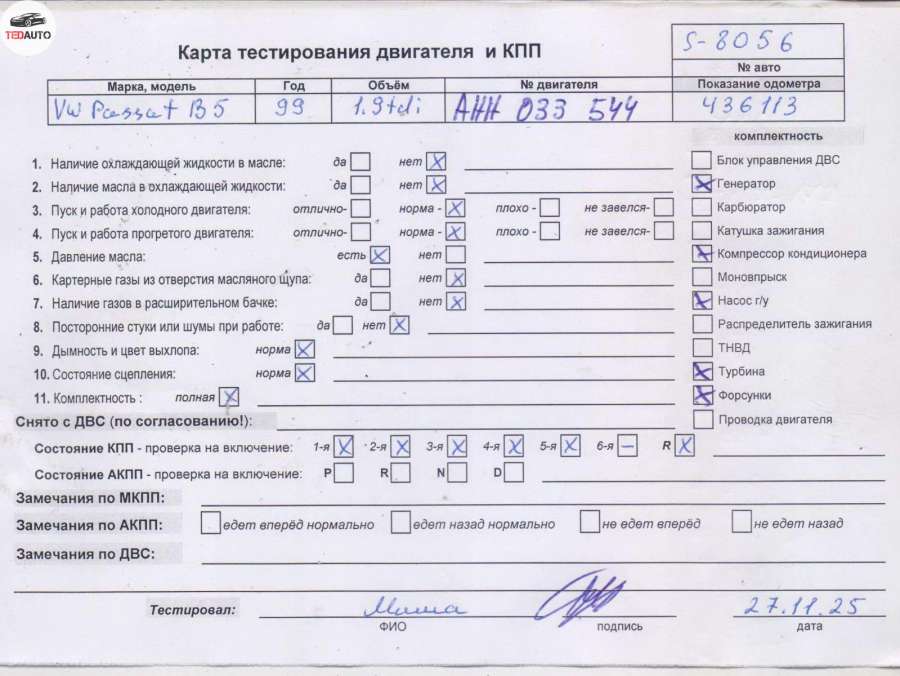 TEDAUTO
Карта тестирования двигателя и КПП
S-8056
№ авто
Марка, модель Год Объём № двигателя Показание одометра
VW Passat B5 99 1.9tdi AHH 033 544 436113
комплектность
1. Наличие охлаждающей жидкости в масле: да нет X
Блок управления ДВС
2. Наличие масла в охлаждающей жидкости: да нет X
X Генератор
3. Пуск и работа холодного двигателя: отлично- норма - X плохо - не завелся-
Карбюратор
4. Пуск и работа прогретого двигателя: отлично- норма - X плохо - не завелся-
Катушка зажигания
5. Давление масла: есть X нет
X Компрессор кондиционера
6. Картерные газы из отверстия масляного щупа: да нет X
Моновпрыск
7. Наличие газов в расширительном бачке: да нет X
X Насос г/у
8. Посторонние стуки или шумы при работе: да нет X
Распределитель зажигания
9. Дымность и цвет выхлопа: норма X
ТНВД
10. Состояние сцепления: норма X
X Турбина
11. Комплектность : полная X
X Форсунки
Снято с ДВС (по согласованию!):
Проводка двигателя
Состояние КПП - проверка на включение: 1-я X 2-я X 3-я X 4-я X 5-я X 6-я – R X
Состояние АКПП - проверка на включение: P R N D
Замечания по МКПП:
Замечания по АКПП: едет вперёд нормально едет назад нормально не едет вперёд не едет назад
Замечания по ДВС:
Тестировал: Миша 27.11.25
ФИО подпись дата